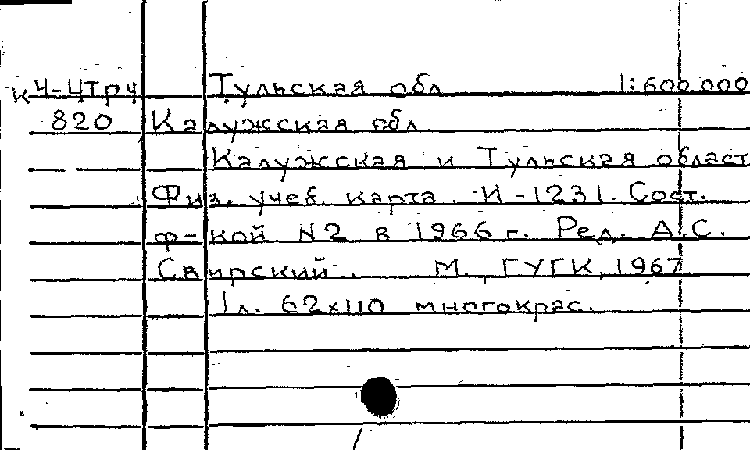 кЧ-Чтрч Тульская обл 1:600.000
820 Калужская обл
Калужская и Тульская област
Физ. учеб. карта. И-1231. Сост.
ф-кой N2 в 1966 г. Ред. А.С.
Свирский. М., ГУГК, 1967
1 л. 62х110 многокрас.